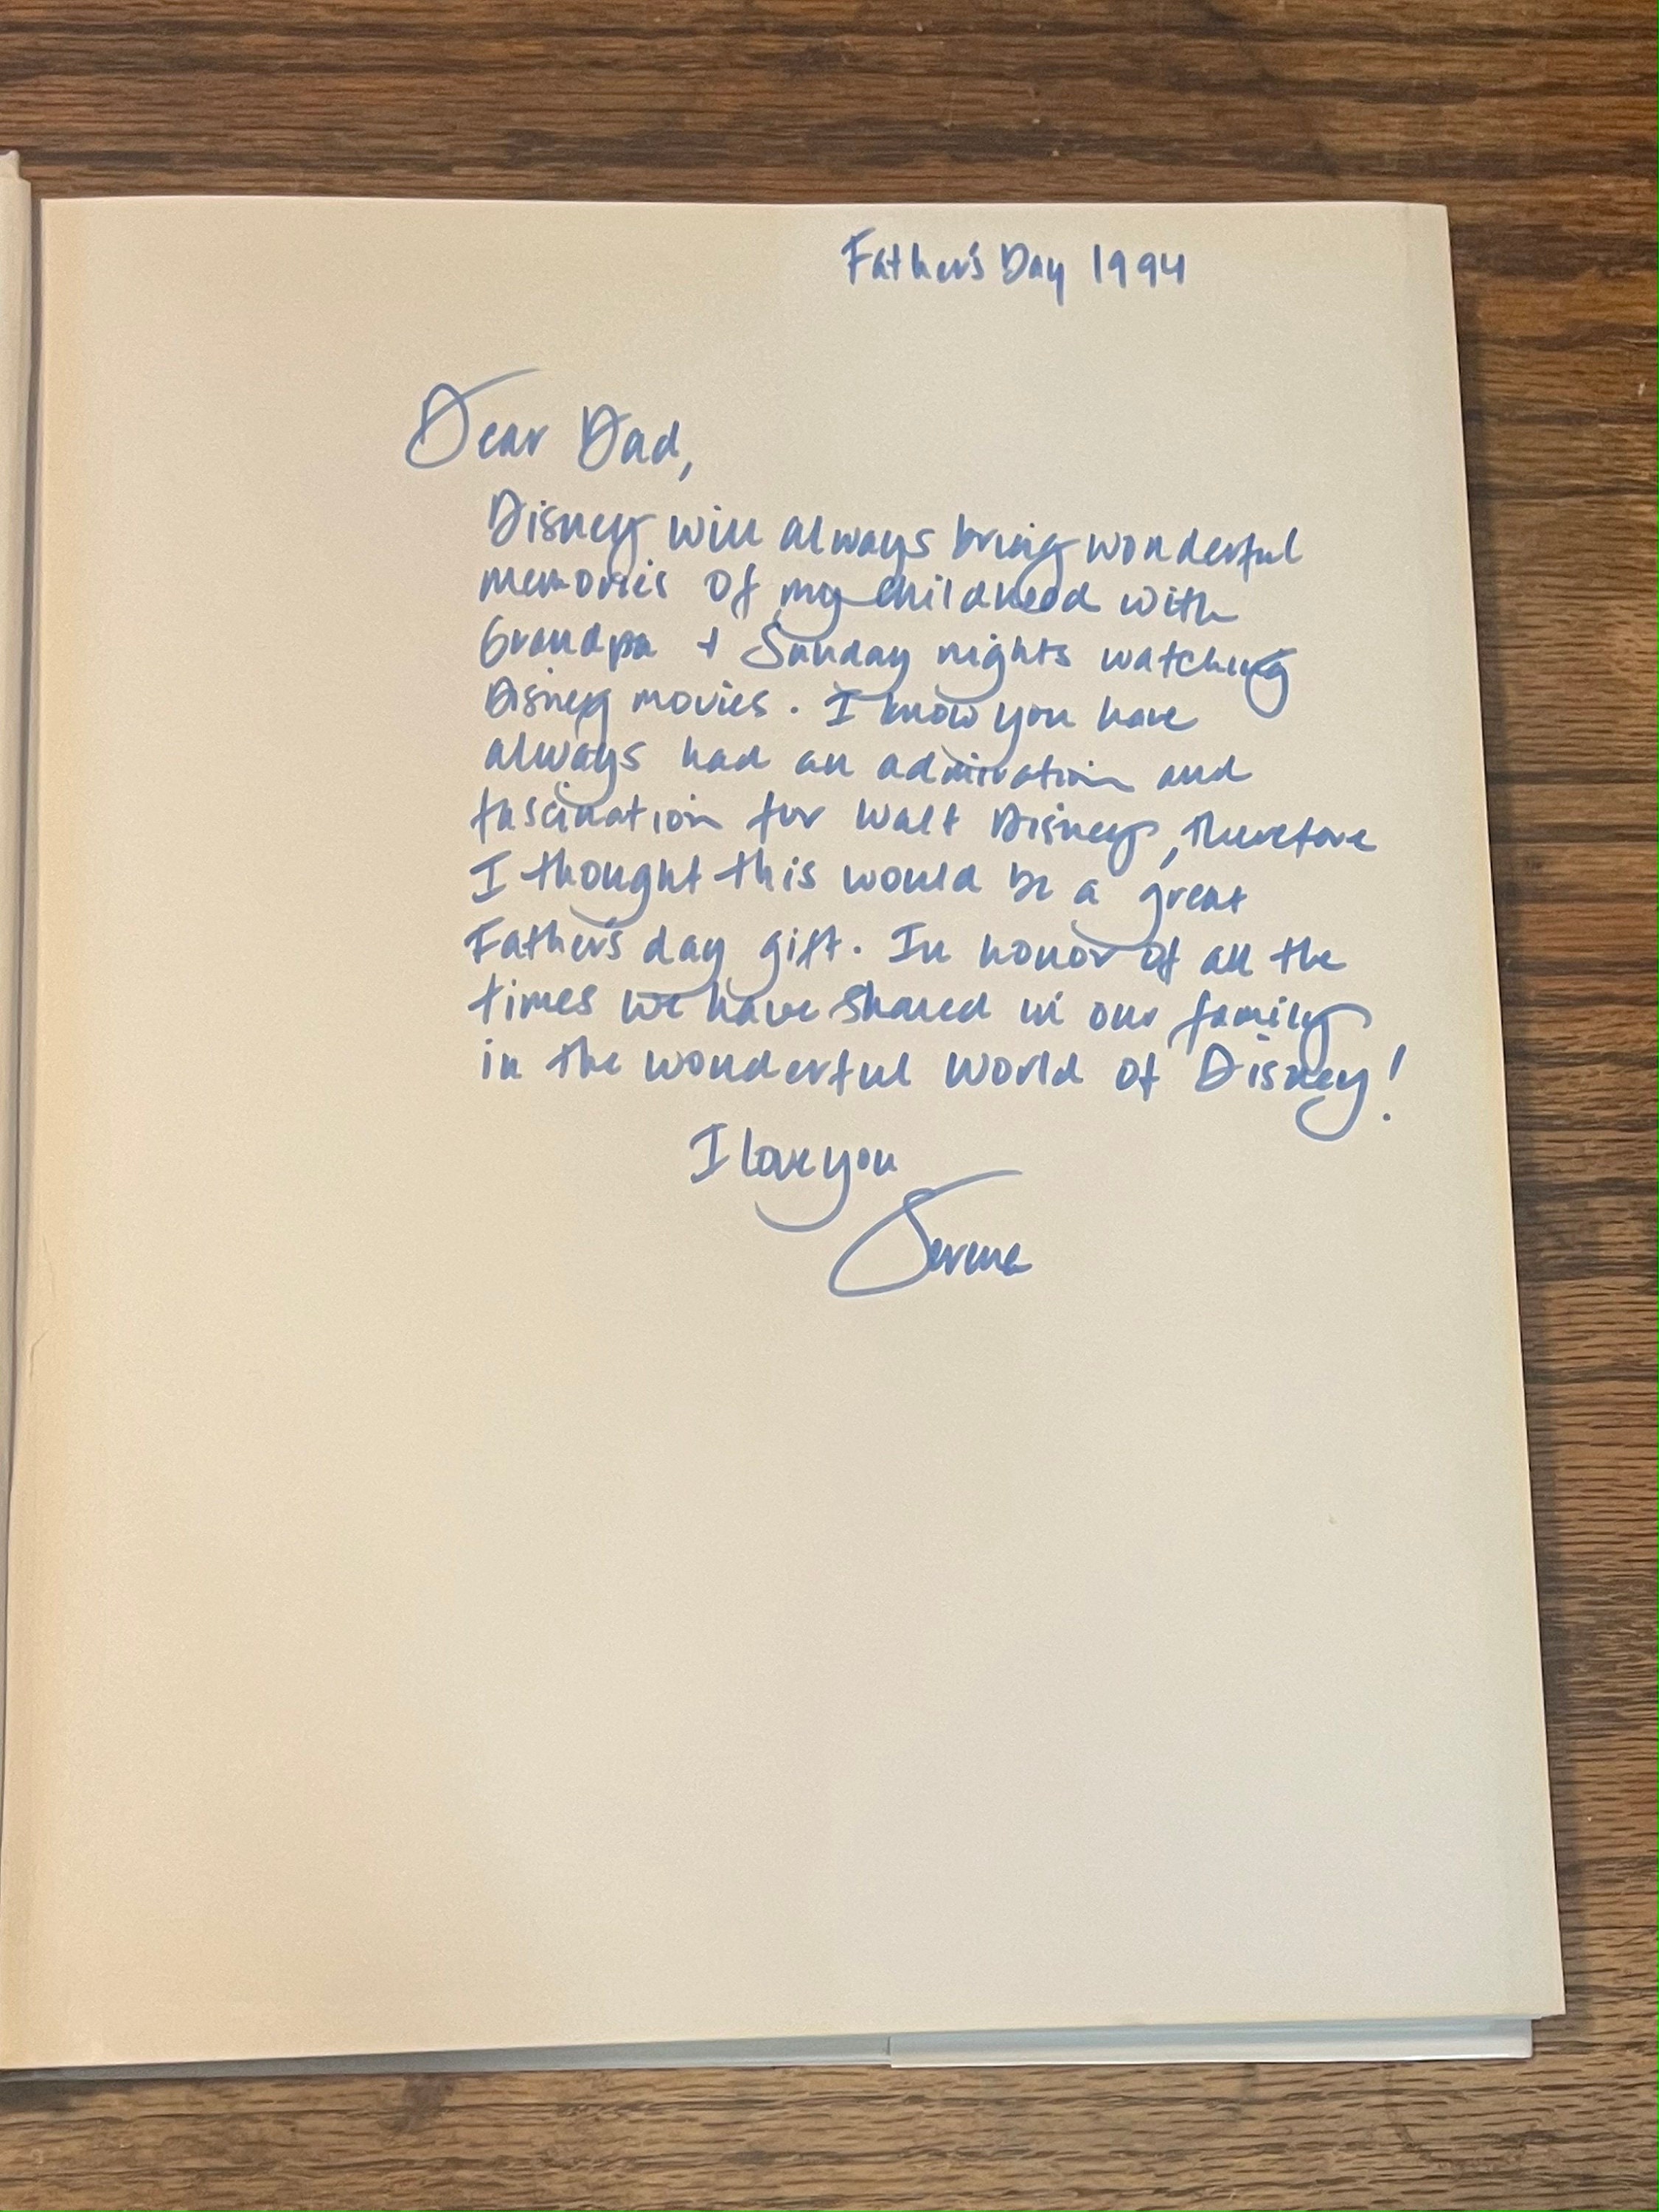 Father's Day 1994
Dear Dad,
Disney will always bring wonderful
memories of my childhood with
Grandpa + Sunday nights watching
Disney movies. I know you have
always had an admiration and
fascination for Walt Disney, therefore
I thought this would be a great
Father's day gift. In honor of all the
times we have shared in our family
in the wonderful world of Disney!
I love you
Serena